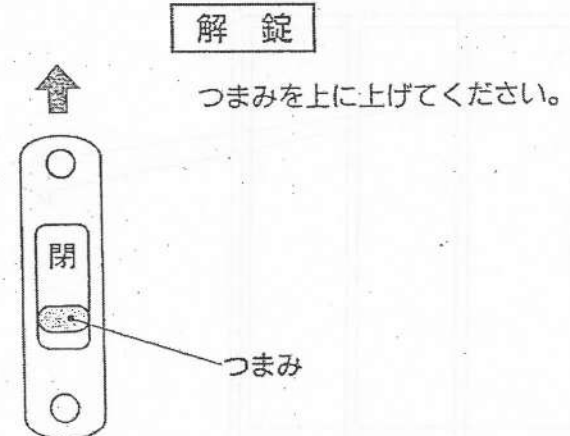 解 錠
つまみを上に上げてください。
閉
つまみ